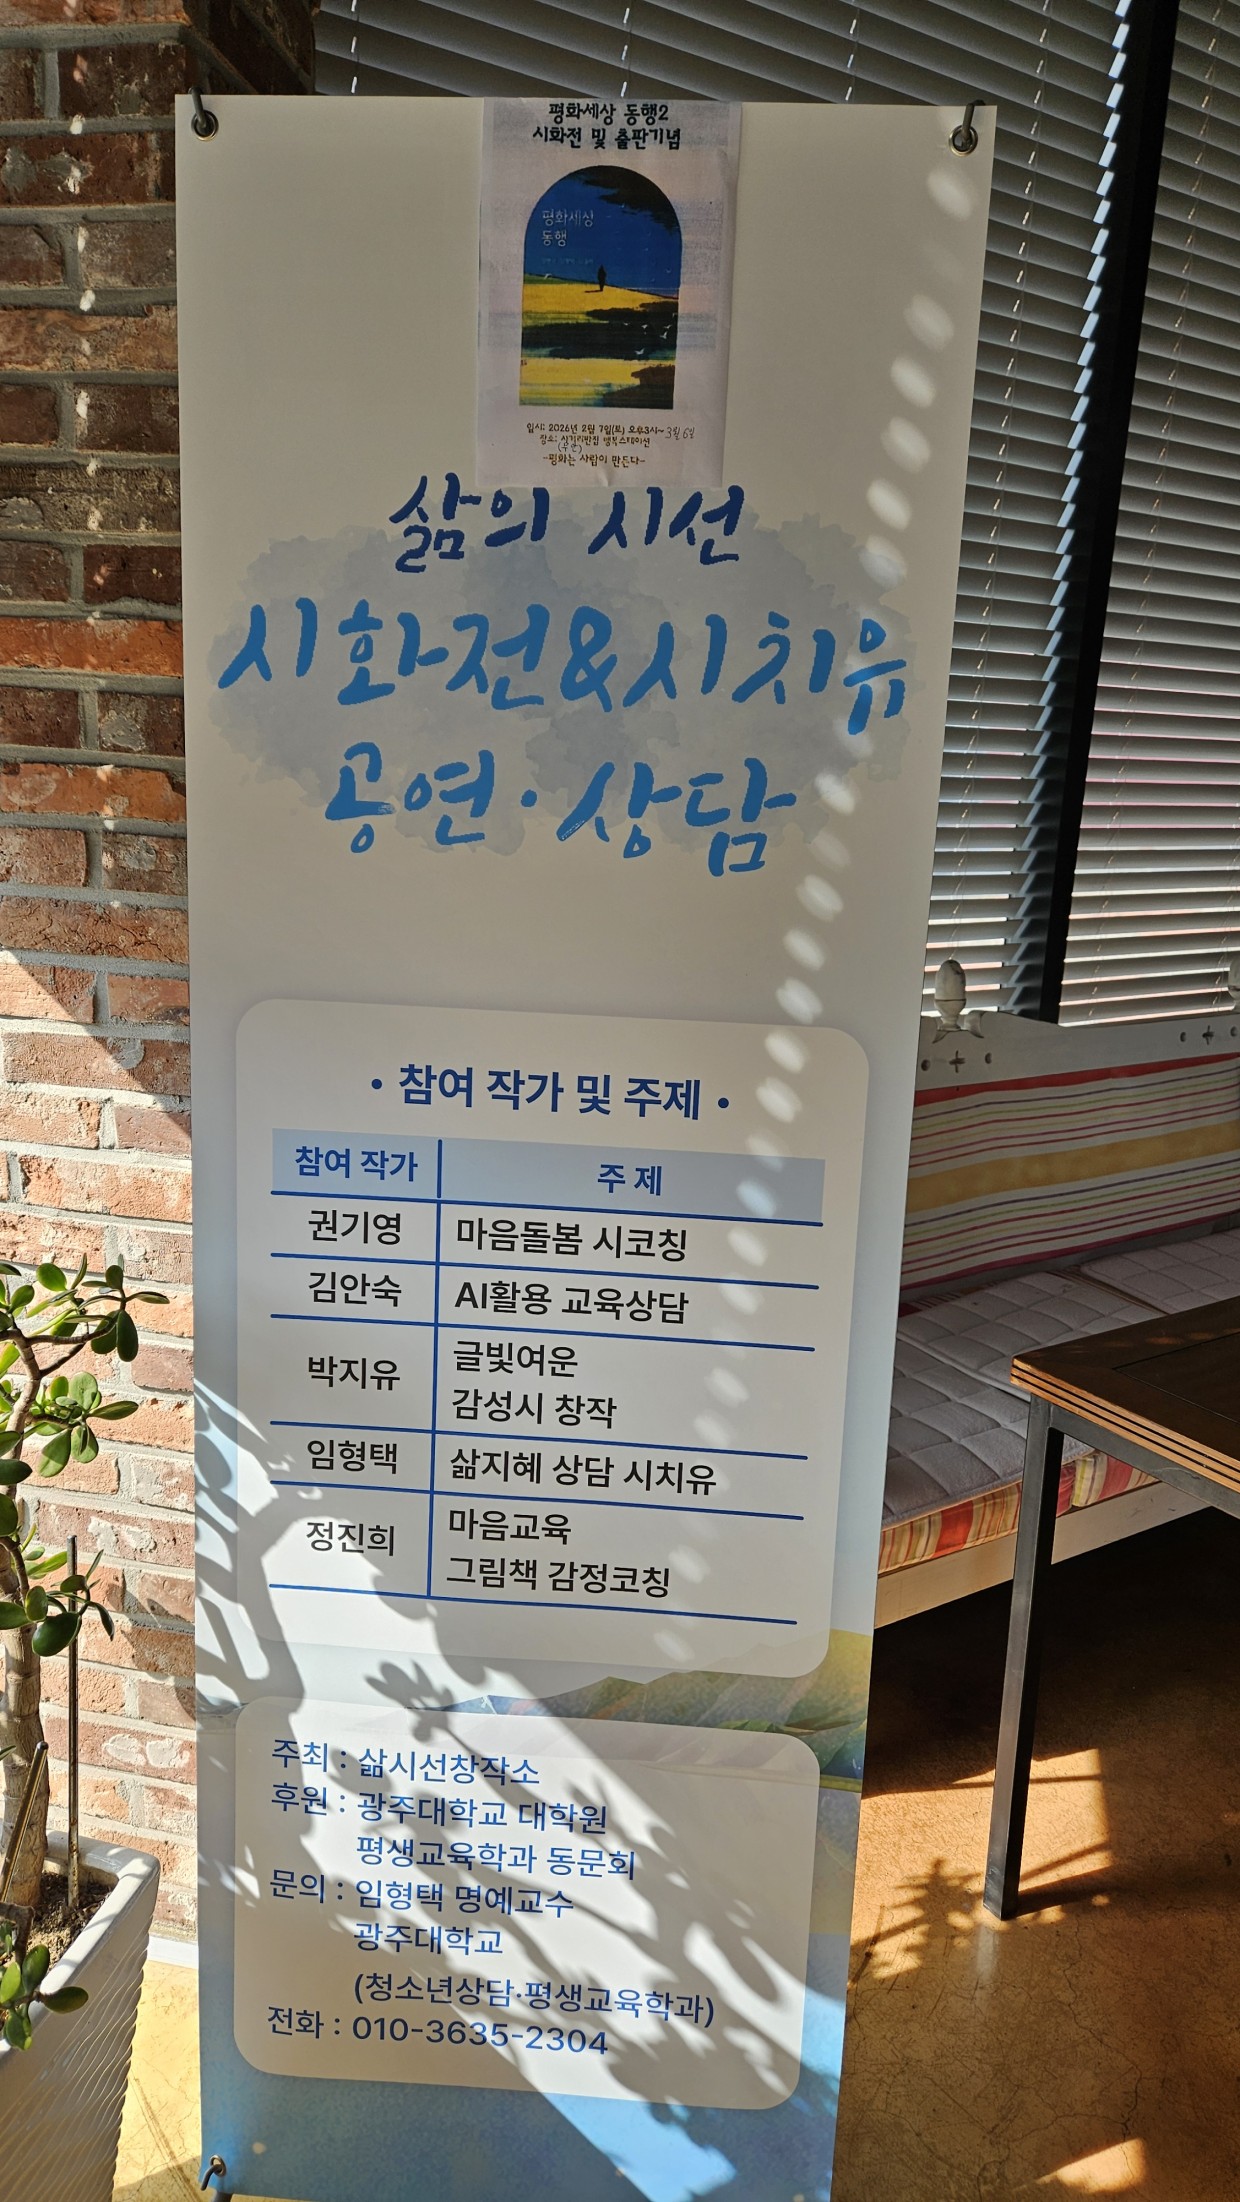 평화세상 동행2
시화전 및 출판기념
평화세상
동행
일시: 2026년 2월 7일(토) 오후3시~ 3월 6일
장소: 행복스테이션
-평화는 사람이 만든다-
삶의 시선
시화전&시치유
공연·상담
• 참여 작가 및 주제 •
참여 작가 주 제
권기영 마음돌봄 시코칭
김안숙 AI활용 교육상담
박지유 글빛여운
감성시 창작
임형택 삶지혜 상담 시치유
정진희 마음교육
그림책 감정코칭
주최 : 삶시선창작소
후원 : 광주대학교 대학원
평생교육학과 동문회
문의 : 임형택 명예교수
광주대학교
(청소년상담·평생교육학과)
전화 : 010-3635-2304